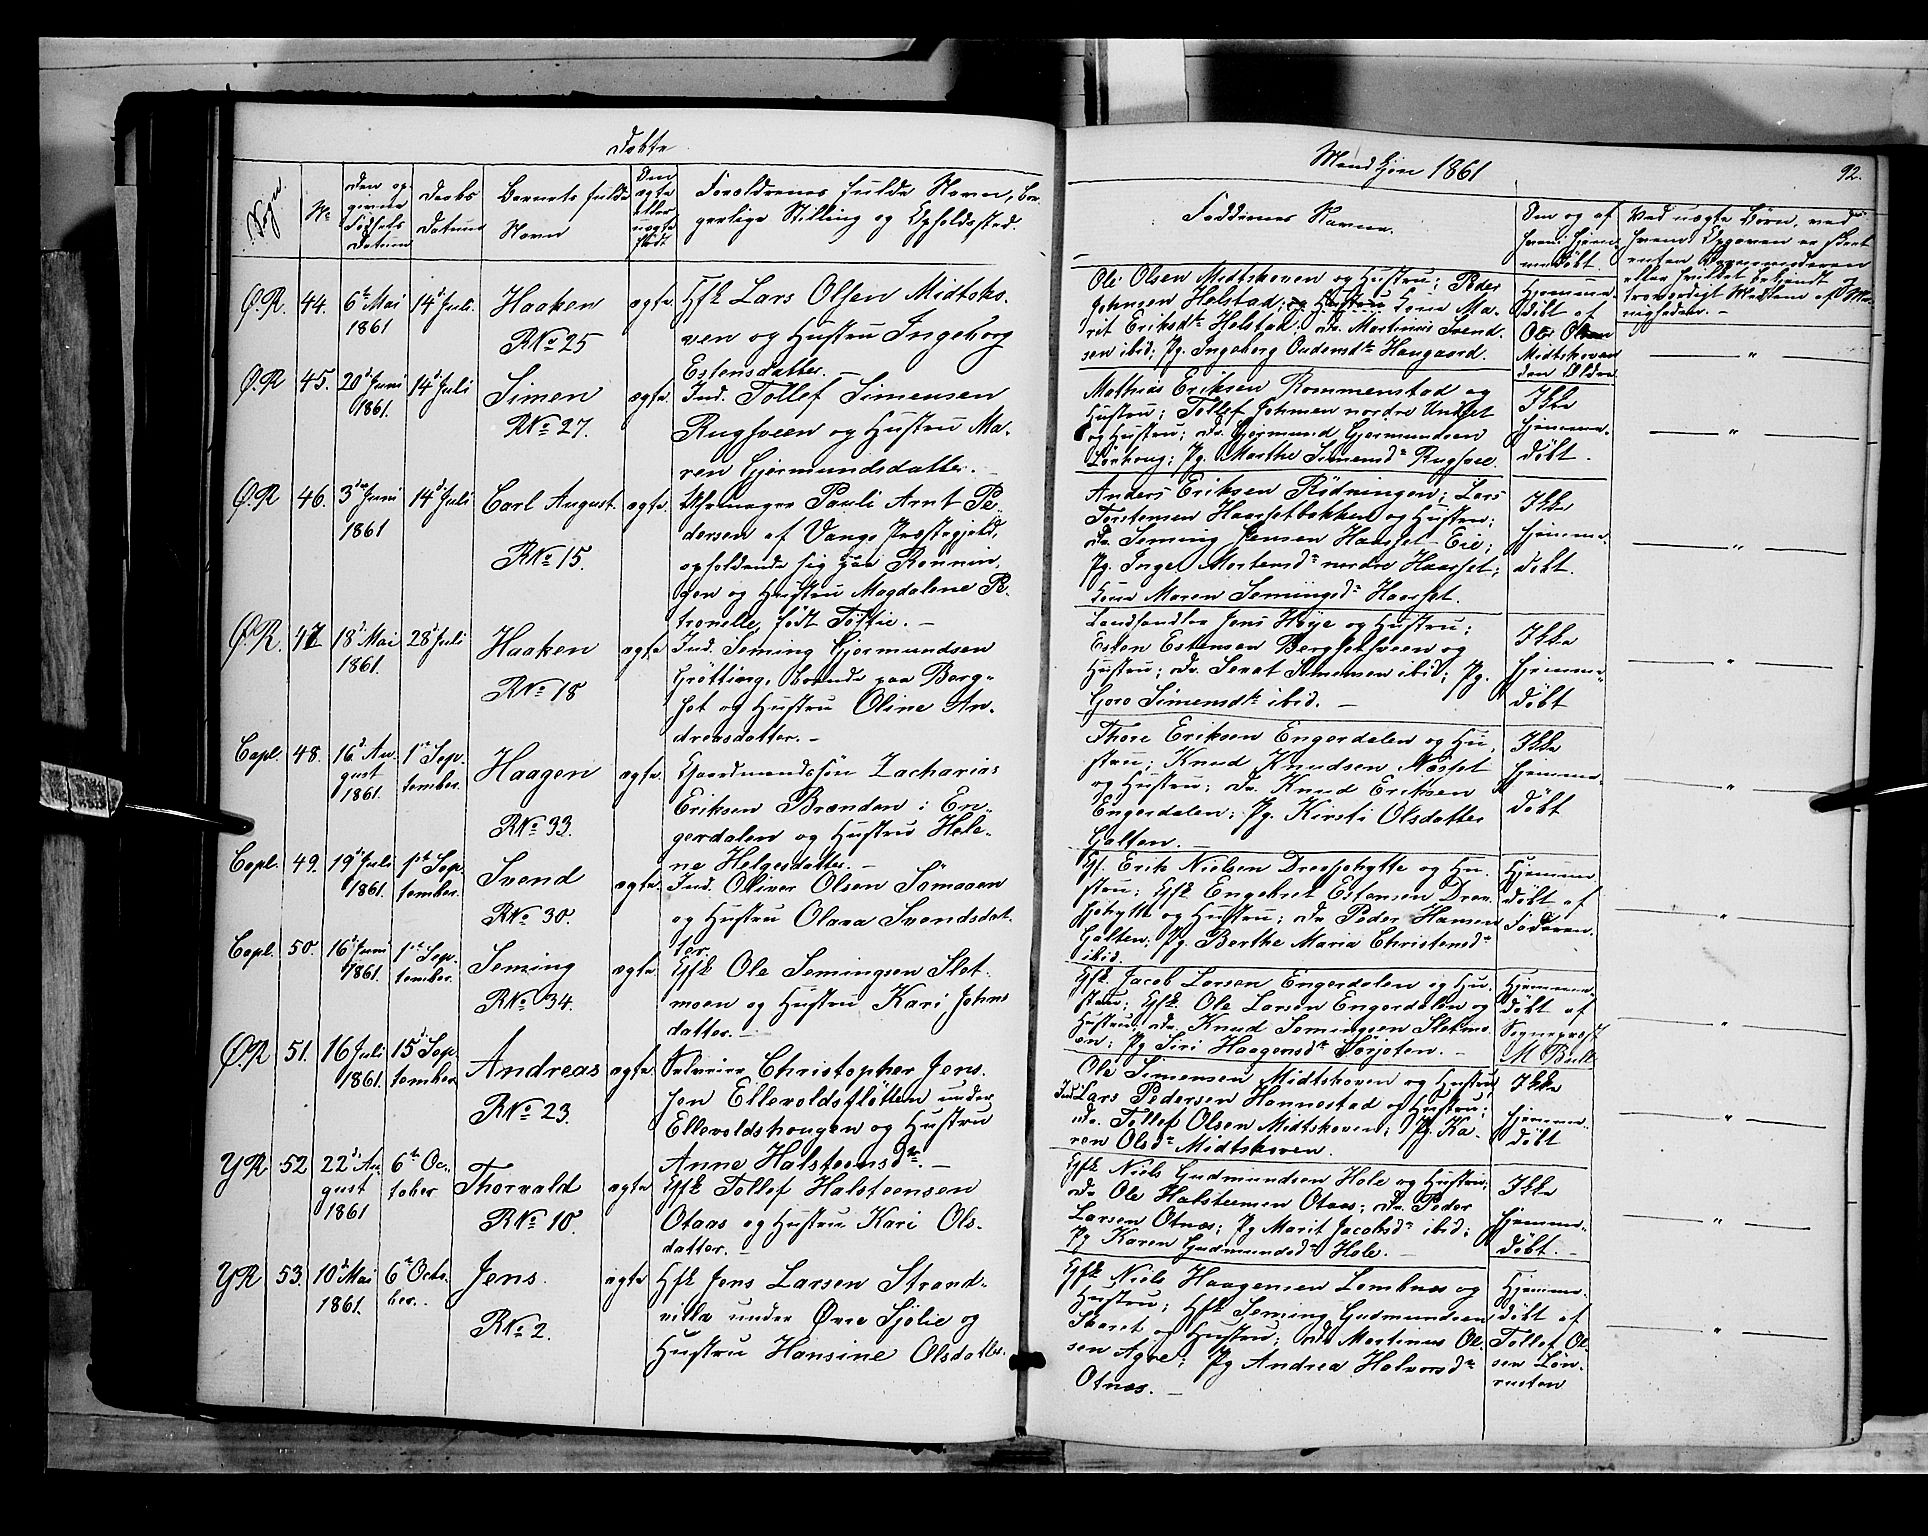 Døbte
Mandkjøn 1861
92.
Sogn.
No
Den op-
givne
Fødsels
Datum
Daabs
Datum
Barnets fulde
Navn
Om
ægte
eller
uægte
født.
Forældrenes fulde Navn, bor-
gerlige Stilling og Opholdssted.
Faddernes Navne.
Om og af
hvem hjem-
medøbt.
Ved uægte Børn, ved
hvem Opgaven er skeet
Ø.R. 44. 6te Mai
1861
14de Juli.
Haaken
R No 25
ægte
Gfk Lars Olsen Midtsko-
ven og Hustru Ingeborg
Estensdatter. —
Ole Olsen Midtskoven og Hustru; Peder
Johnsen Helstad; og Hustru Kone Ma-
rit Eriksdtr Helstad; Dr. Martinus Svend-
sen ibid; Pg. Ingeborg Oudensdtr Haugaard.
Hjemme-
døbt af
Ole Olsen
Midtskoven
den Ældre
— " —
Ø.R 45. 20de Juni
1861.
14de Juli
Simen
R No 27.
ægte.
Ind. Tollef Simensen
Rugsveen og Hustru Ma-
ren Gjermundsdatter. —
Mathias Eriksen Rommenstad og
Hustru; Tollef Johnsen nordre Undset
og Hustru; Dr. Gjermund Gjermundsen
Lørhoug; Pg. Marthe Simensdr Rugsve.
Ikke
hjemme-
døbt.
— " —
Ø.R 46. 3die Juni
1861
14de Juli
Carl August
R No 15.
ægte.
Uhrmager Pauli Arnt Pe-
dersen af Vangs Præstegjeld,
opholdende sig paa Rønnin-
gen og Hustru Magdalene Pe-
tronelle, født Tøftie. —
Anders Eriksen Rødningen; Lars
Torstensen Haarsetbakken og Hustru;
Dr. Seming Jensen Haarset-Eie;
Pg. Inge Mortensdr nordre Haarset;
Kone Maren Semingsdr Haarset.
Ikke
hjemme-
døbt.
— " —
Ø.R. 47 18de Mai
1861.
28de Juli
Haaken
R No 18
ægte
Ind. Seming Gjermundsen
Grøtting, boende paa Berg-
set og Hustru Oline An-
dreasdatter. —
Landhandler Jens Høye og Hustru;
Esten Estensen Bergsetsveen og
Hustru; Dr. Simensen ibid; Pg.
Goro Simensdtr ibid. —
Ikke
hjemme-
døbt
— " —
Capl. 48. 16de Au-
gust
1861.
1ste Sep-
tember.
Haagen
R No 33.
ægte.
Gaardmandssøn Zacharias
Eriksen Brænden i En-
gerdalen og Hustru Hele-
ne Helgesdatter. —
Thore Eriksen Engerdalen og Hu-
stru; Knud Knudsen Næsset
og Hustru; Dr. Knud Eriksen
Engerdalen; Pg. Kirsti Olsdatter
Galten. —
Ikke
hjemme-
døbt
— " —
Capl. 49. 19de Juli
1861.
1ste Sep-
tember.
Svend
R No 30.
ægte.
Ind. Oliver Olsen Sømaaen
og Hustru Olava Svendsdat-
ter.
Gf. Erik Nielsen Drevsjøhytte og Hu-
stru; Gfk Engebret Estensen Drev-
sjøhytte og Hustru; Dr. Peder Hansen
Galten; Pg. Berthe Maria Christensdr
ibid.
Hjemme-
døbt af
Faderen.
— " —
Capl. 50. 16de Juni
1861.
1ste Sep-
tember.
Seming
R No 34.
ægte.
Gfk Ole Semingsen Slet-
moen og Hustru Kari Johns
datter. —
Gfk. Jacob Larsen Engerdalen og Hu-
stru; Gfk. Ole Larsen Engerdalen og
Hustru; Dr. Knud Semingsen Sletmo-
en; Pg Siri Haagensdtr Sørjoten. —
Hjemme-
døbt af
Sognepræst
M Bull
— " —
Ø.R 51. 16 Juli
1861.
15de Sep-
tember
Andreas
R No 23.
ægte.
Selveier Christopher Jens-
sen Ellevoldsfløtten under
Ellevoldshougen og Hustru
Anne Halsteensdtr. —
Ole Simensen Midtskoven og Hustru;
Ind. Lars Pedersen Hannestad og Hustru;
Dr. Tollef Olsen Midtskoven; Pg. Ka-
ren Olsdr Midtskoven.
Ikke
hjemme-
døbt
— " —
Y R 52 22de Au-
gust
1861
6te Oc-
tober
Thorvald
R No 10.
ægte
Gfk Tollef Halsteensen
Otnæs og Hustru Kari Ols-
datter. —
Gfk Niels Gudmundsen Hole og Hustru;
Dr Ole Halsteensen Otnæs; Dr. Peder
Larsen Otnæs; Pg Marit Jacobsdr ibid;
Pg Karen Gudmundsdr Hole. —
Ikke
hjemme-
døbt. —
— " —
Y R 53. 10de Mai
1861.
6te Octo-
ber.
Jens
R No 2.
ægte
Gfk Jens Larsen Strand-
villa under Øvre Sjølie og
Hustru Hansine Olsdatter.
Gfk Niels Haagensen Lombnæs og
Hustru; Gfk Seming Gudmundsen
Skaret og Hustru; Dr. Martinus Ol-
sen Agre; Pg Andrea Halvorsdr
Otnæs. —
Hjemme-
døbt af
Tollef Ol-
sen Løn-
rusten
— " —